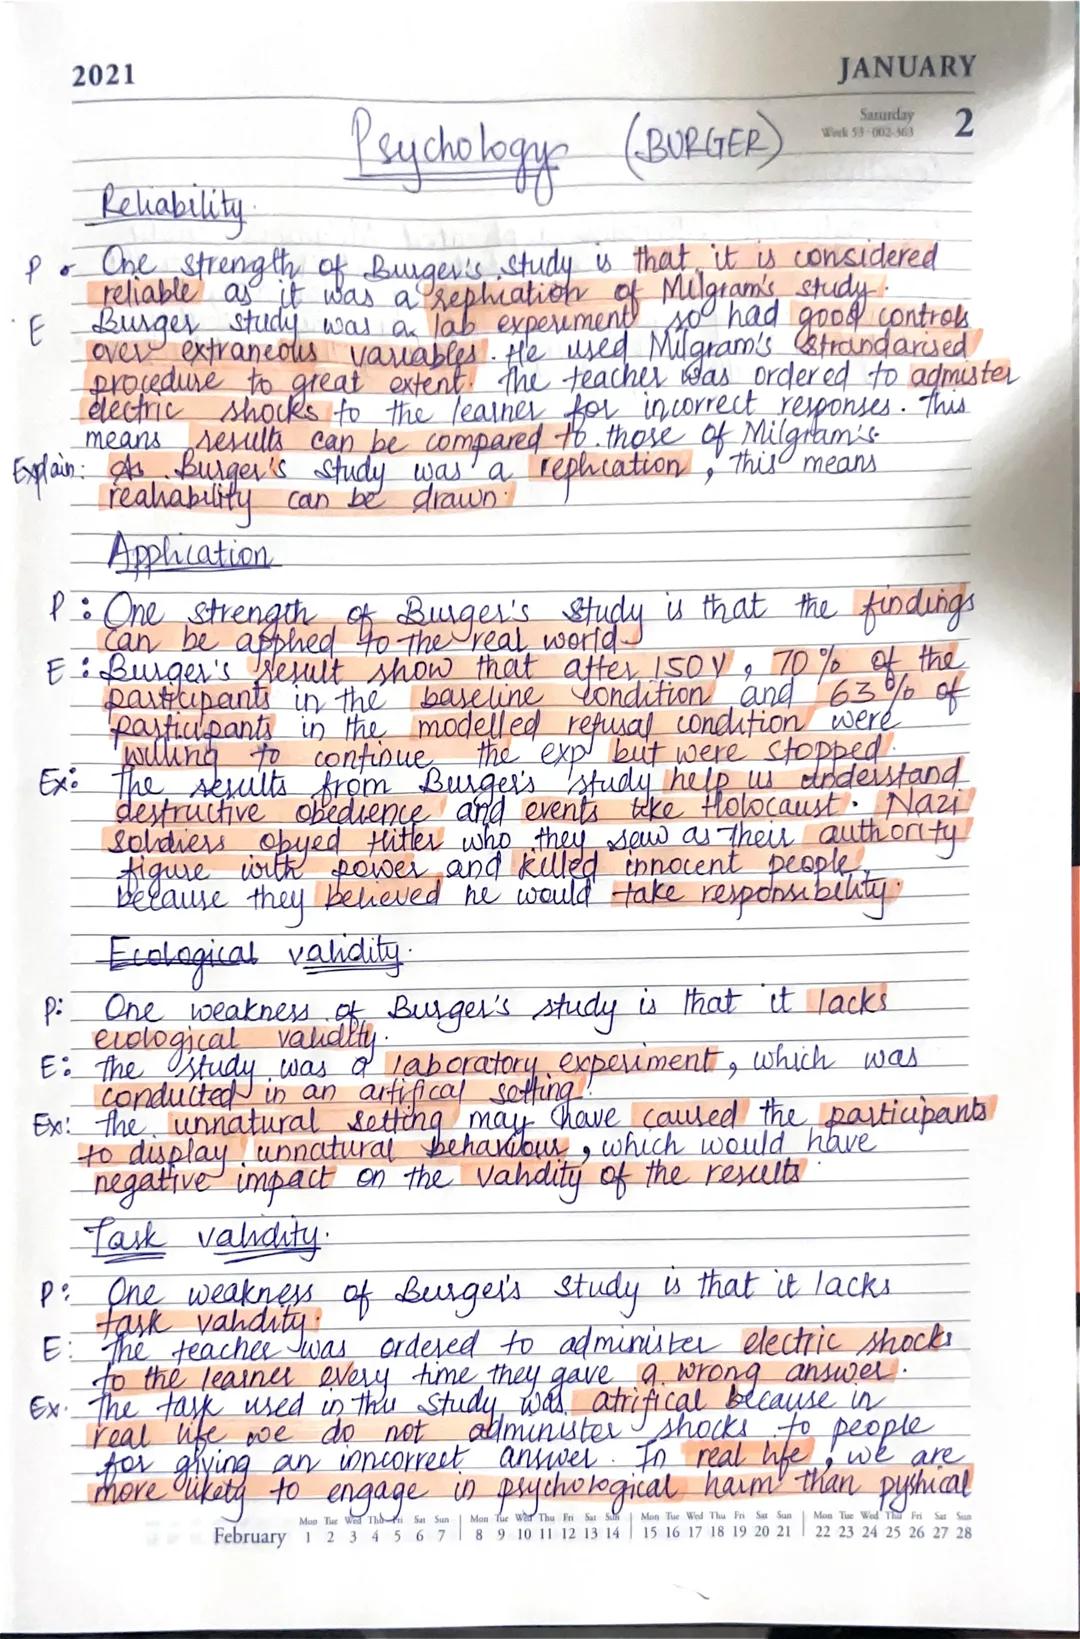 2021 JANUARY
Saturday
Week 53 · 002-363 2
Psychology (BURGER)
Reliability.
P One strength of Burger's study is that it is considered
reliable as it was a replication of Milgram's study.
E Burger study was a lab experiment so had good controls
over extraneous variables. He used Milgram's strandarised
procedure to great extent. The teacher was ordered to admister
electric shocks to the learner for incorrect responses. This
means results can be compared to those of Milgram's.
Explain: As Burger's study was a replication, this means
reahability can be drawn.
Application
P: One strength of Burger's study is that the findings
can be applied to the real world.
E: Burger's result show that after 150V, 70% of the
participants in the baseline condition and 63% of
participants in the modelled refusal condition were
willing to continue the exp but were stopped.
Ex: The results from Burger's study help us understand
destructive obedience and events like Holocaust. Nazi
soldiers obyed Hitler who they saw as their authority
figure with power and killed innocent people
because they believed he would take responsibility.
Ecological validity.
P: One weakness of Burger's study is that it lacks
ecological validity.
E: The study was a laboratory experiment, which was
conducted in an artifical setting.
Ex: The unnatural setting may have caused the participants
to display unnatural behaviour, which would have
negative impact on the validity of the results
Task validity.
P: One weakness of Burger's study is that it lacks
task validity.
E: The teacher was ordered to administer electric shocks
to the learner every time they gave a wrong answer.
Ex. The task used in this study was atrifical because in
real life we do not administer shocks to people
for giving an inncorrect answer. In real life, we are
more likely to engage in psychological harm than pyshical
Mon Tue Wed Thu Fri Sat Sun Mon Tue Wed Thu Fri Sat Sun Mon Tue Wed Thu Fri Sat Sun Mon Tue Wed Thu Fri Sat Sun
February 1 2 3 4 5 6 7 8 9 10 11 12 13 14 15 16 17 18 19 20 21 22 23 24 25 26 27 28